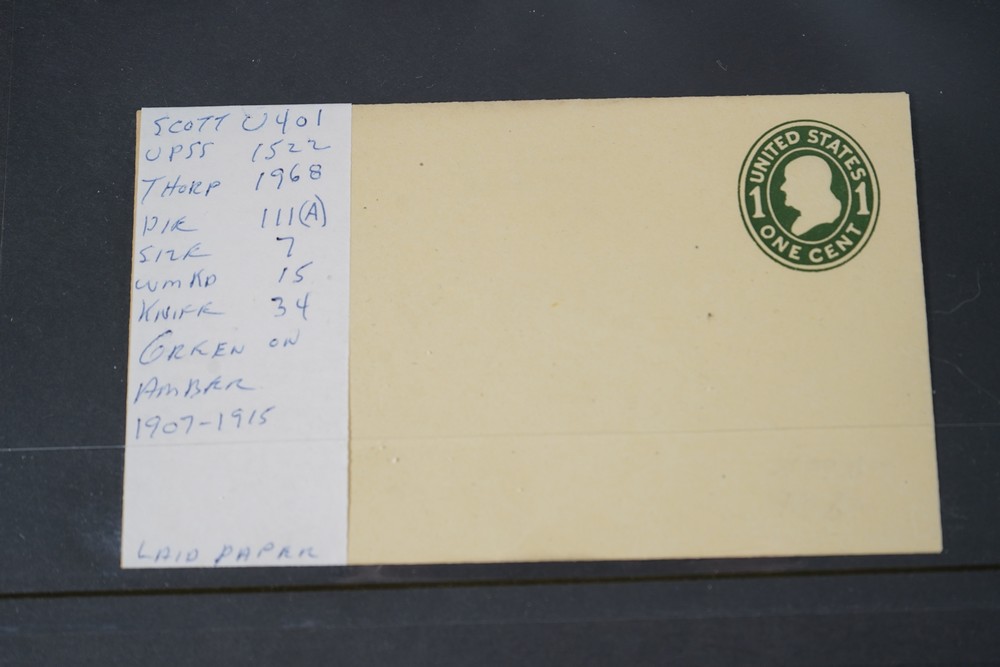 SCOTT U401
UPSS 1522
THORP 1968
DIE 111(A)
SIZE 7
WMKD 15
KNIFE 34
GREEN ON
AMBER
1907-1915
LAID PAPER
UNITED STATES
1 1
ONE CENT